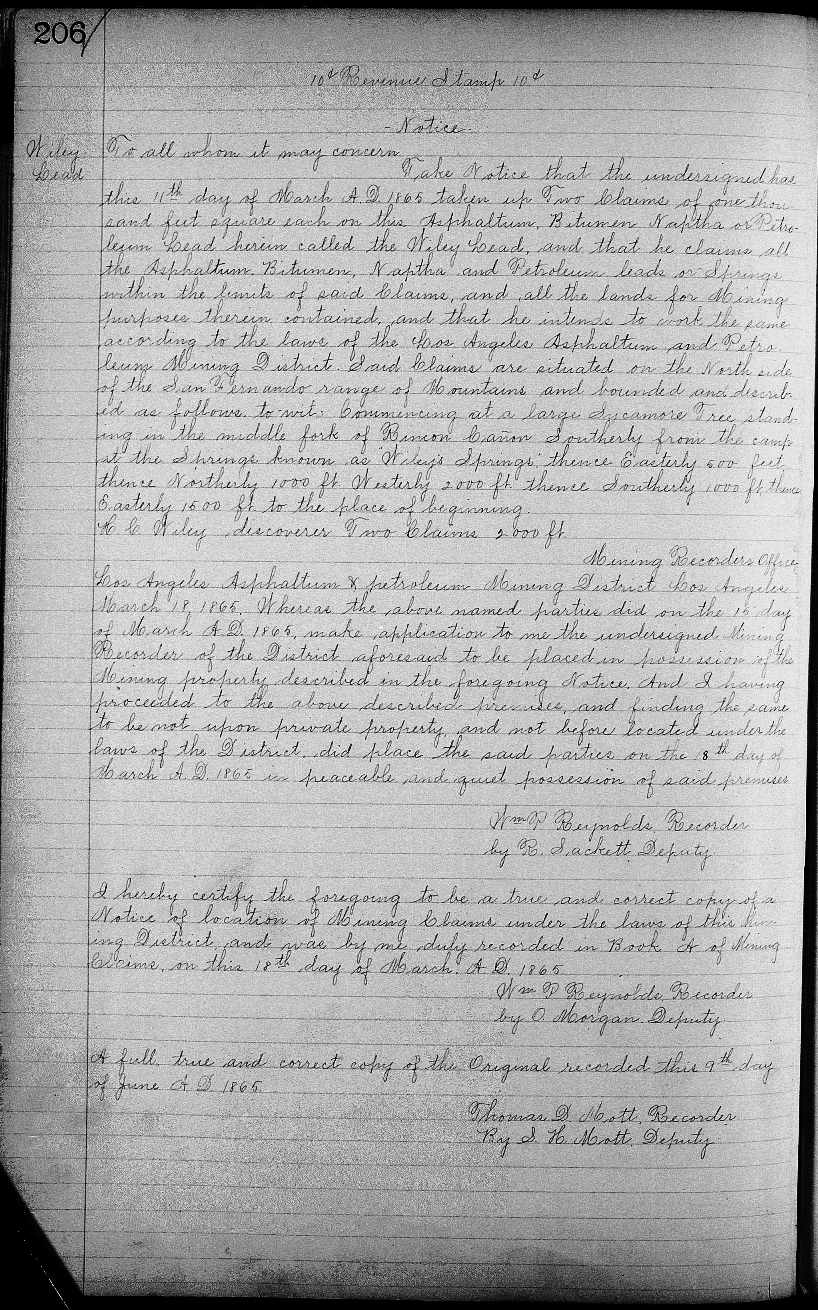 206
10¢ Revenue Stamp 10¢
- Notice -
Wiley
Lead
To all whom it may concern
Take Notice that the undersigned has
this 11th day of March A.D. 1865 taken up Two Claims of one thou
sand feet square each on this Asphaltum, Bitumen Naptha or Petro-
leum Lead herein called the Wiley Lead, and that he claims all
the Asphaltum, Bitumen, Naptha and Petroleum leads or Springs
within the limits of said Claims, and all the lands for Mining
purposes therein contained, and that he intends to work the same
according to the laws of the Los Angeles Asphaltum and Petro
leum Mining District. Said Claims are situated on the North side
of the San Fernando range of Mountains and bounded and describ-
ed as follows. to wit: Commencing at a large Sycamore Tree stand-
ing in the middle fork of Rincon Cañon Southerly from the camp
at the Springs known as "Wiley's Springs" thence Easterly 500 feet,
thence Northerly 1000 ft Westerly 2000 ft thence Southerly 1000 ft, thence
Easterly 1500 ft to the place of beginning.
H C Wiley discoverer Two Claims 2000 ft
Mining Recorders Office
Los Angeles Asphaltum & petroleum Mining District Los Angeles
March 18, 1865, Whereas the above named parties did on the 15 day
of March A.D. 1865, make application to me the undersigned Mining
Recorder of the District aforesaid to be placed in possession of the
Mining property described in the foregoing Notice. And I having
proceeded to the above described premises, and finding the same
to be not upon private property, and not before located under the
laws of the District. did place the said parties on the 18th day of
March A.D. 1865 in peaceable and quiet possession of said premises
Wm P Reynolds, Recorder
by R. Sackett Deputy
I hereby certify the foregoing to be a true and correct copy of a
Notice of location of Mining Claims under the laws of this Min-
ing District, and was by me duly recorded in Book A of Mining
Claims, on this 18th day of March. A.D. 1865
Wm P Reynolds, Recorder
by O. Morgan Deputy
A full, true and correct copy of the Original recorded this 9th day
of June A D 1865
Thomas D Mott, Recorder
By S. H. Mott, Deputy